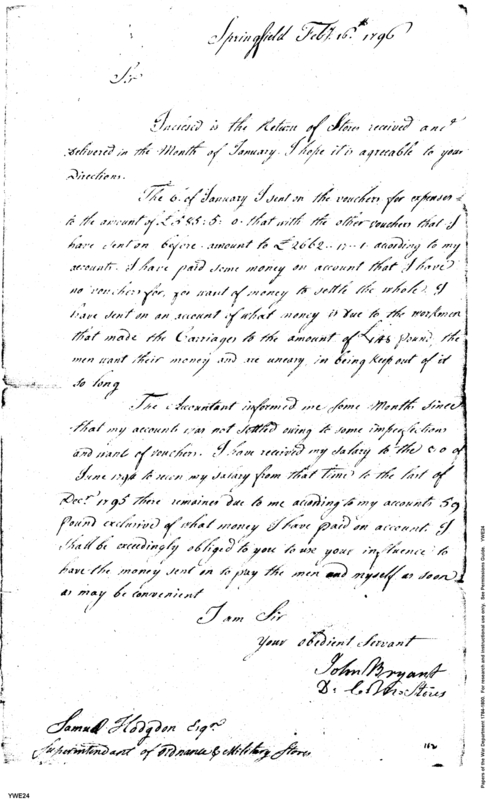 Springfield Feby. 16th 1796
Sir
Inclosed is the Return of Stores received and
delivered in the Month of January. I hope it is agreeable to your
Directions.
The 6th of January I sent on the vouchers for expenses
to the amount of £585:5:0 that with the other vouchers that I
have sent on before amount to £2662 acording to my
accounts. I have paid some money on account that I have
no vouchers for, for want of money to settle the whole. I
have sent on an account of what money is due to the workmen
that made the Carriages to the amount of £148 pound, the
men want their money and are uneasy in being keep out of it
so long
The Accountant informed me some Months since
that my accounts was not settled owing to some imperfections
and want of vouchers. I have received my salary to the 30 of
June 1794 to recon my salary from that time to the last of
Decr. 1795 there remaines due to me acording to my accounts 59
pound exclusived of what money I have paid on account. I
shall be exceedingly obliged to you to use your influence to
have the money sent on to pay the men and myself as soon
as may be convenient
I am Sir
Your obedient Servant
John Bryant
Samuel Hodgdon Esqr.
Superintendant of Ordnance & Military Stores
112
YWE24
Papers of the War Department 1784-1800. For research and instructional use only. See Permissions Guide. YWE24